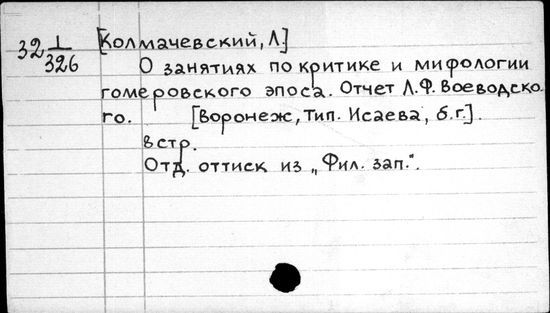 32 1/326
[Колмачевский, Л.]
О занятиях по критике и мифологии
гомеровского эпоса. Отчет Л.Ф. Воеводско-
го. [Воронеж, Тип. Исаева, б.г.].
8 стр.
Отд. оттиск из „Фил. зап.".